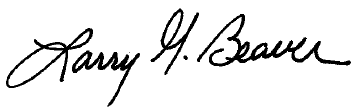 Larry G. Beaver